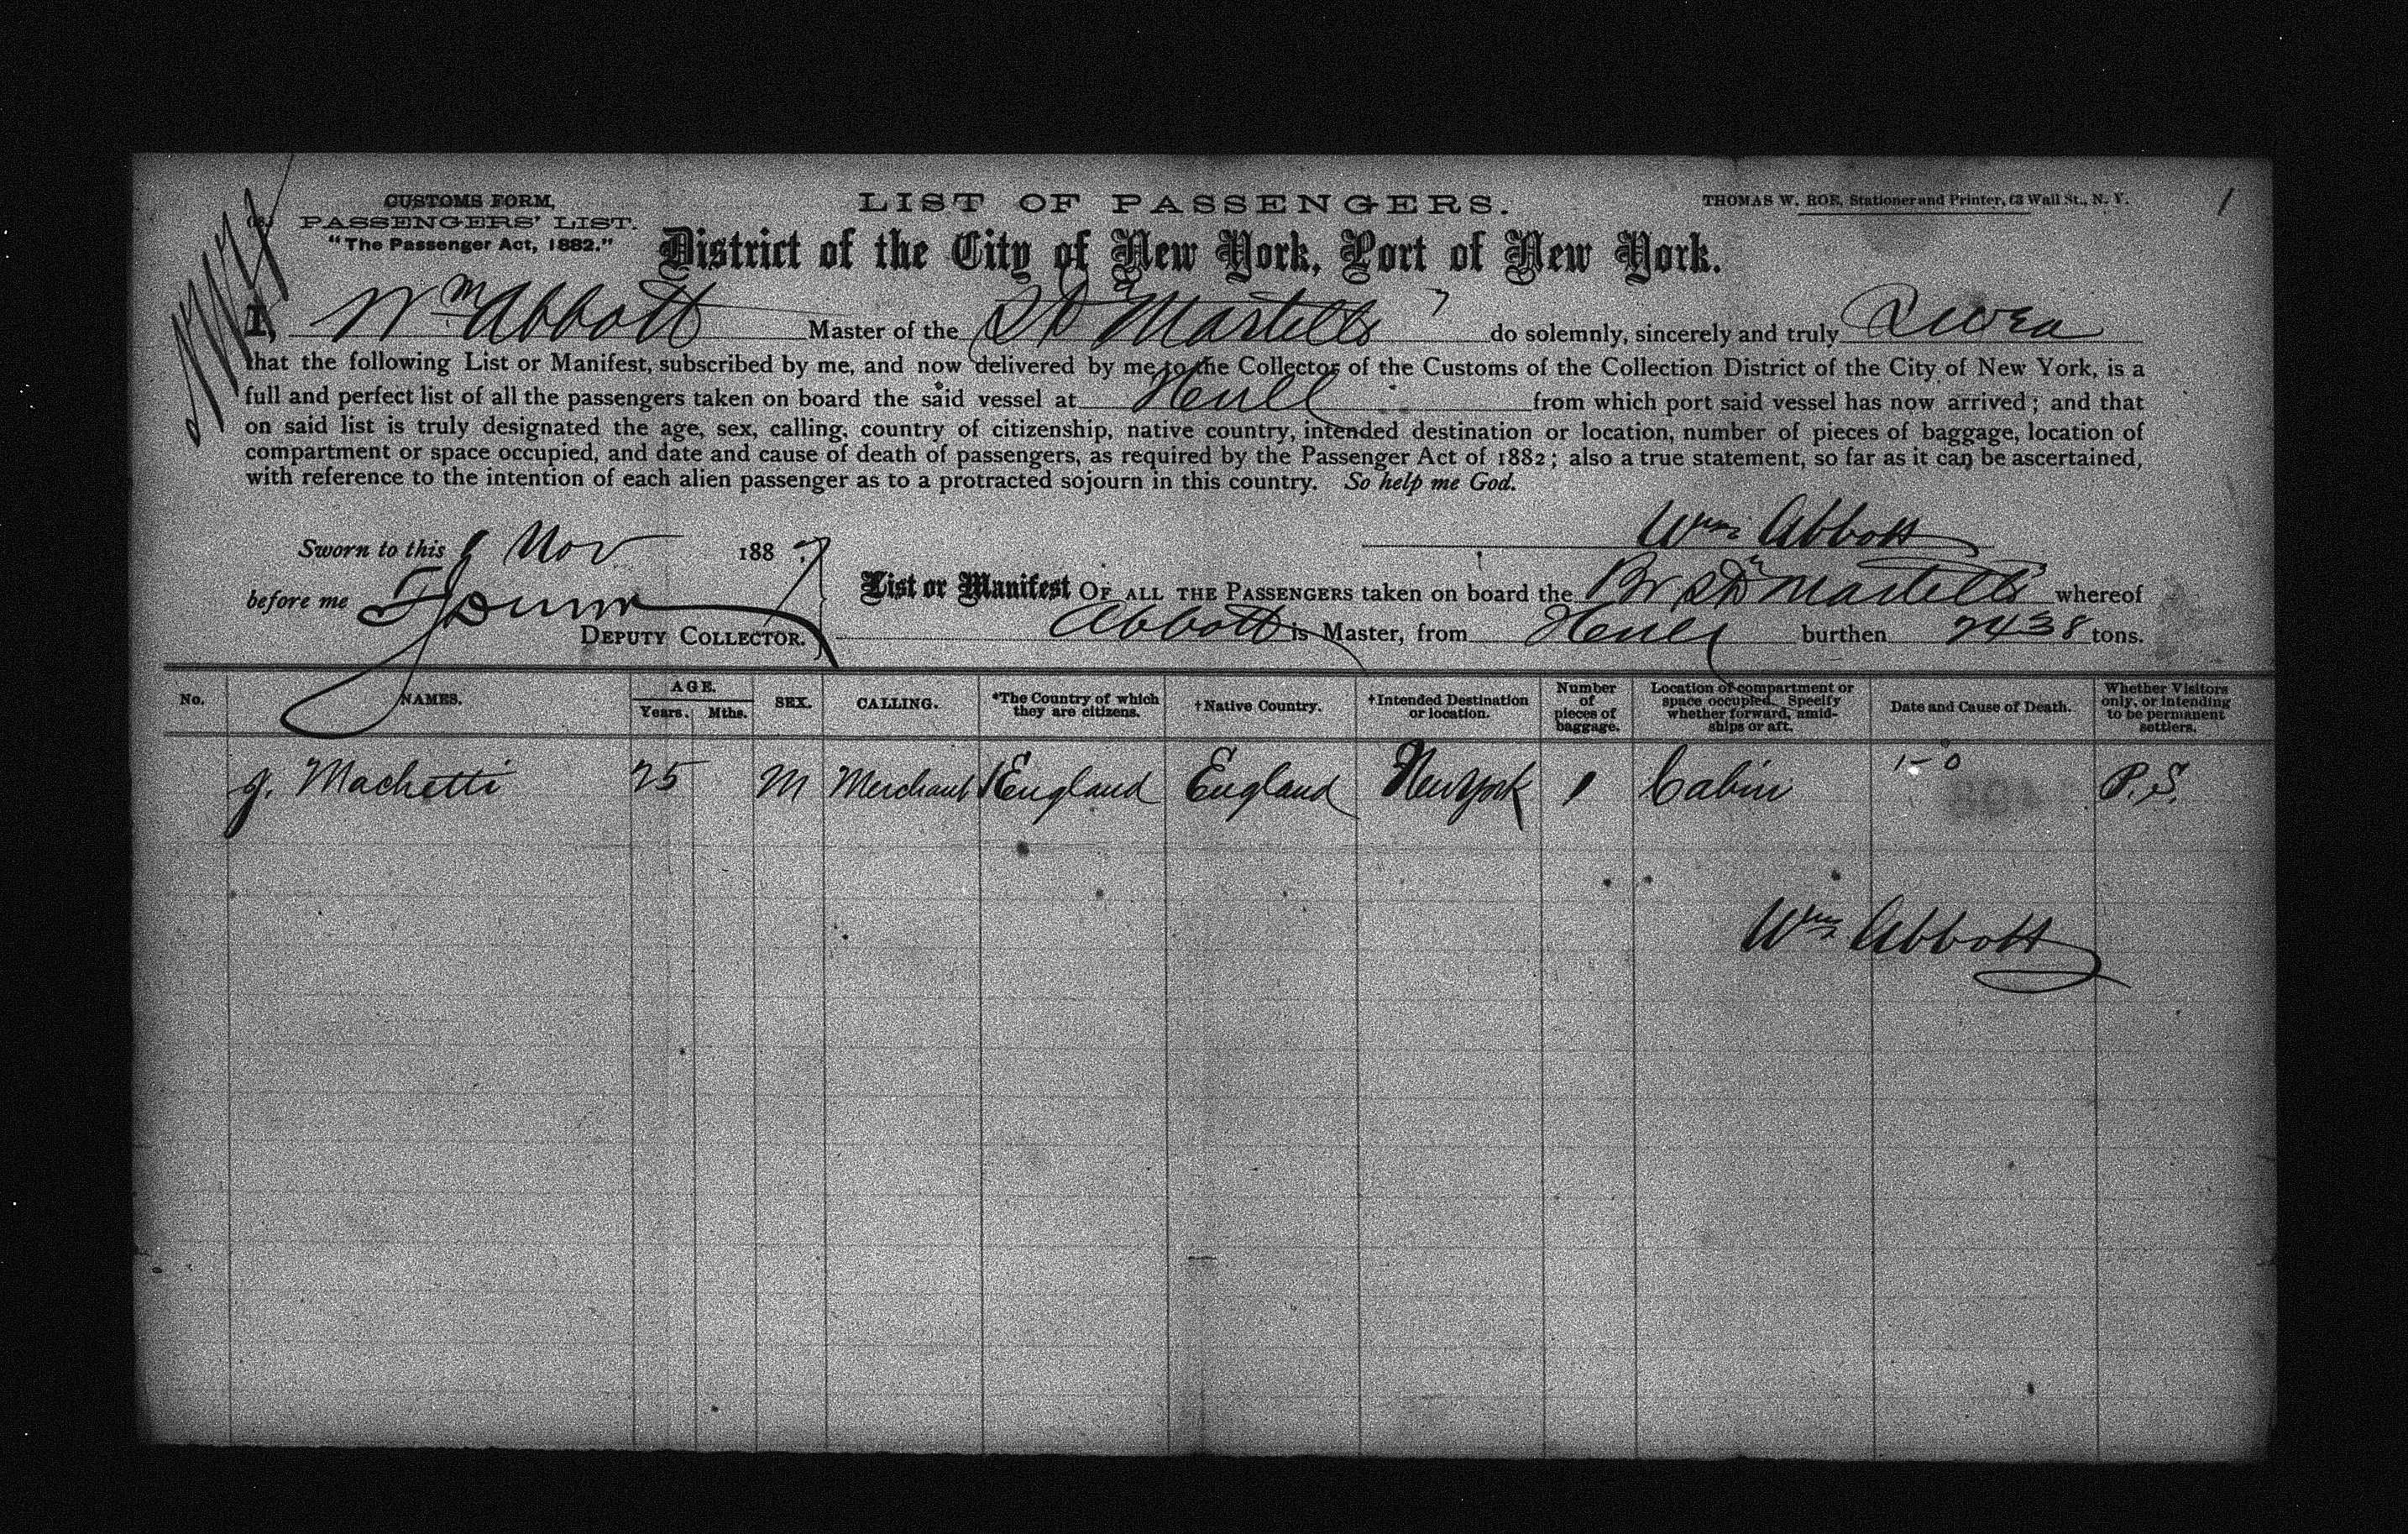 CUSTOMS FORM,
PASSENGERS' LIST.
"The Passenger Act, 1882."
LIST OF PASSENGERS.
THOMAS W. ROE, Stationer and Printer, 63 Wall St., N. Y.
1
District of the City of New York, Port of New York.
I, Wm Abbott Master of the Martello do solemnly, sincerely and truly Swear
that the following List or Manifest, subscribed by me, and now delivered by me to the Collector of the Customs of the Collection District of the City of New York, is a
full and perfect list of all the passengers taken on board the said vessel at Hull from which port said vessel has now arrived; and that
on said list is truly designated the age, sex, calling, country of citizenship, native country, intended destination or location, number of pieces of baggage, location of
compartment or space occupied, and date and cause of death of passengers, as required by the Passenger Act of 1882; also a true statement, so far as it can be ascertained,
with reference to the intention of each alien passenger as to a protracted sojourn in this country. So help me God.
Wm Abbott
Sworn to this Nov 1887
before me
DEPUTY COLLECTOR.
List or Manifest OF ALL THE PASSENGERS taken on board the Br Martello whereof
Abbott is Master, from Hull burthen 2438 tons.
No. NAMES. AGE. Years. Mths. SEX. CALLING. *The Country of which they are citizens. †Native Country. †Intended Destination or location. Number of pieces of baggage. Location of compartment or space occupied. Specify whether forward, amidships or aft. Date and Cause of Death. Whether Visitors only, or intending to be permanent settlers.
J. Machetti 25 M Merchant England England New York 1 Cabin 1-0 P.S.
Wm Abbott